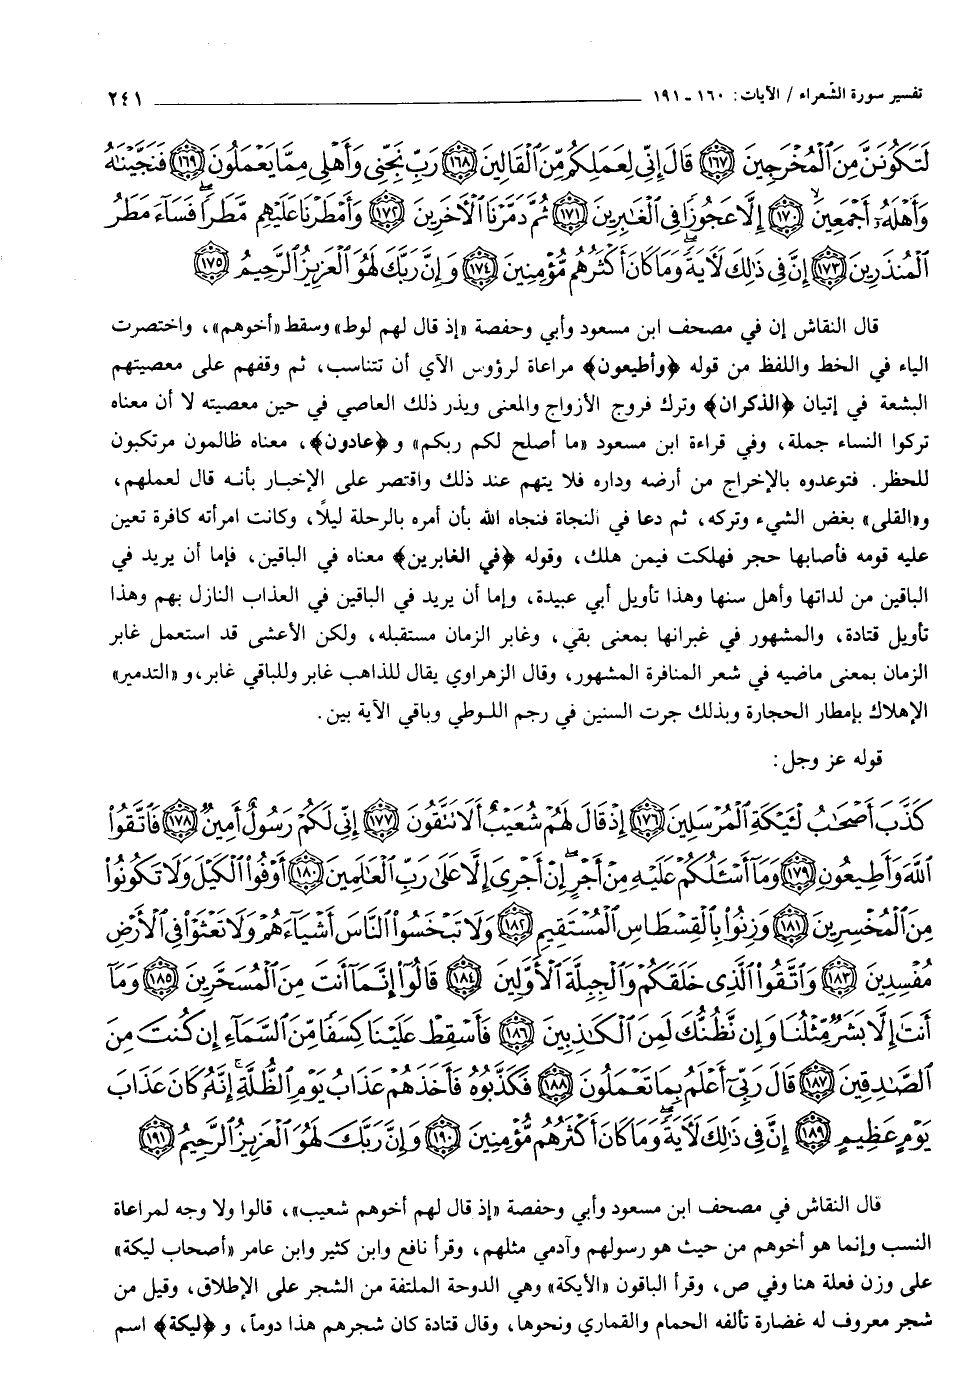 تفسير سورة الشّعراء / الآيات: ١٦٠ - ١٩١ ٢٤١
لَتَكُونَنَّ مِنَ الْمُخْرَجِينَ ﴿١٦٧﴾ قَالَ إِنِّي لِعَمَلِكُم مِّنَ الْقَالِينَ ﴿١٦٨﴾ رَبِّ نَجِّنِي وَأَهْلِي مِمَّا يَعْمَلُونَ ﴿١٦٩﴾ فَنَجَّيْنَاهُ
وَأَهْلَهُ أَجْمَعِينَ ﴿١٧٠﴾ إِلَّا عَجُوزًا فِي الْغَابِرِينَ ﴿١٧١﴾ ثُمَّ دَمَّرْنَا الْآخَرِينَ ﴿١٧٢﴾ وَأَمْطَرْنَا عَلَيْهِم مَّطَرًا فَسَاءَ مَطَرُ
الْمُنذَرِينَ ﴿١٧٣﴾ إِنَّ فِي ذَٰلِكَ لَآيَةً وَمَا كَانَ أَكْثَرُهُم مُّؤْمِنِينَ ﴿١٧٤﴾ وَإِنَّ رَبَّكَ لَهُوَ الْعَزِيزُ الرَّحِيمُ ﴿١٧٥﴾
قال النقاش إن في مصحف ابن مسعود وأبي وحفصة «إذ قال لهم لوط» وسقط «أخوهم»، واختصرت
الياء في الخط واللفظ من قوله ﴿وأطيعون﴾ مراعاة لرؤوس الآي أن تتناسب، ثم وقفهم على معصيتهم
البشعة في إتيان ﴿الذكران﴾ وترك فروج الأزواج والمعنى ويذر ذلك العاصي في حين معصيته لا أن معناه
تركوا النساء جملة، وفي قراءة ابن مسعود «ما أصلح لكم ربكم» و﴿عادون﴾، معناه ظالمون مرتكبون
للحظر. فتوعدوه بالإخراج من أرضه وداره فلا يتهم عند ذلك واقتصر على الإخبار بأنه قال لعملهم،
و«القلى» بغض الشيء وتركه، ثم دعا في النجاة فنجاه الله بأن أمره بالرحلة ليلاً، وكانت امرأته كافرة تعين
عليه قومه فأصابها حجر فهلكت فيمن هلك، وقوله ﴿في الغابرين﴾ معناه في الباقين، فإما أن يريد في
الباقين من لداتها وأهل سنها وهذا تأويل أبي عبيدة، وإما أن يريد في الباقين في العذاب النازل بهم وهذا
تأويل قتادة، والمشهور في غبرانها بمعنى بقي، وغابر الزمان مستقبله، ولكن الأعشى قد استعمل غابر
الزمان بمعنى ماضيه في شعر المنافرة المشهور، وقال الزهراوي يقال للذاهب غابر وللباقي غابر، و«التدمير»
الإهلاك بإمطار الحجارة وبذلك جرت السنين في رجم اللوطي وباقي الآية بين.
قوله عز وجل:
كَذَّبَ أَصْحَابُ لْئَيْكَةِ الْمُرْسَلِينَ ﴿١٧٦﴾ إِذْ قَالَ لَهُمْ شُعَيْبٌ أَلَا تَتَّقُونَ ﴿١٧٧﴾ إِنِّي لَكُمْ رَسُولٌ أَمِينٌ ﴿١٧٨﴾ فَاتَّقُوا
اللَّهَ وَأَطِيعُونِ ﴿١٧٩﴾ وَمَا أَسْأَلُكُمْ عَلَيْهِ مِنْ أَجْرٍ إِنْ أَجْرِيَ إِلَّا عَلَىٰ رَبِّ الْعَالَمِينَ ﴿١٨٠﴾ أَوْفُوا الْكَيْلَ وَلَا تَكُونُوا
مِنَ الْمُخْسِرِينَ ﴿١٨١﴾ وَزِنُوا بِالْقِسْطَاسِ الْمُسْتَقِيمِ ﴿١٨٢﴾ وَلَا تَبْخَسُوا النَّاسَ أَشْيَاءَهُمْ وَلَا تَعْثَوْا فِي الْأَرْضِ
مُفْسِدِينَ ﴿١٨٣﴾ وَاتَّقُوا الَّذِي خَلَقَكُمْ وَالْجِبِلَّةَ الْأَوَّلِينَ ﴿١٨٤﴾ قَالُوا إِنَّمَا أَنتَ مِنَ الْمُسَحَّرِينَ ﴿١٨٥﴾ وَمَا
أَنتَ إِلَّا بَشَرٌ مِّثْلُنَا وَإِن نَّظُنُّكَ لَمِنَ الْكَاذِبِينَ ﴿١٨٦﴾ فَأَسْقِطْ عَلَيْنَا كِسَفًا مِّنَ السَّمَاءِ إِن كُنتَ مِنَ
الصَّادِقِينَ ﴿١٨٧﴾ قَالَ رَبِّي أَعْلَمُ بِمَا تَعْمَلُونَ ﴿١٨٨﴾ فَكَذَّبُوهُ فَأَخَذَهُمْ عَذَابُ يَوْمِ الظُّلَّةِ إِنَّهُ كَانَ عَذَابَ
يَوْمٍ عَظِيمٍ ﴿١٨٩﴾ إِنَّ فِي ذَٰلِكَ لَآيَةً وَمَا كَانَ أَكْثَرُهُم مُّؤْمِنِينَ ﴿١٩٠﴾ وَإِنَّ رَبَّكَ لَهُوَ الْعَزِيزُ الرَّحِيمُ ﴿١٩١﴾
قال النقاش في مصحف ابن مسعود وأبي وحفصة «إذ قال لهم أخوهم شعيب»، قالوا ولا وجه لمراعاة
النسب وإنما هو أخوهم من حيث هو رسولهم وآدمي مثلهم، وقرأ نافع وابن كثير وابن عامر «أصحاب ليكة»
على وزن فعلة هنا وفي ص، وقرأ الباقون «الأيكة» وهي الدوحة الملتفة من الشجر على الإطلاق، وقيل من
شجر معروف له غضارة تألفه الحمام والقماري ونحوها، وقال قتادة كان شجرهم هذا دوماً، و﴿ليكة﴾ اسم